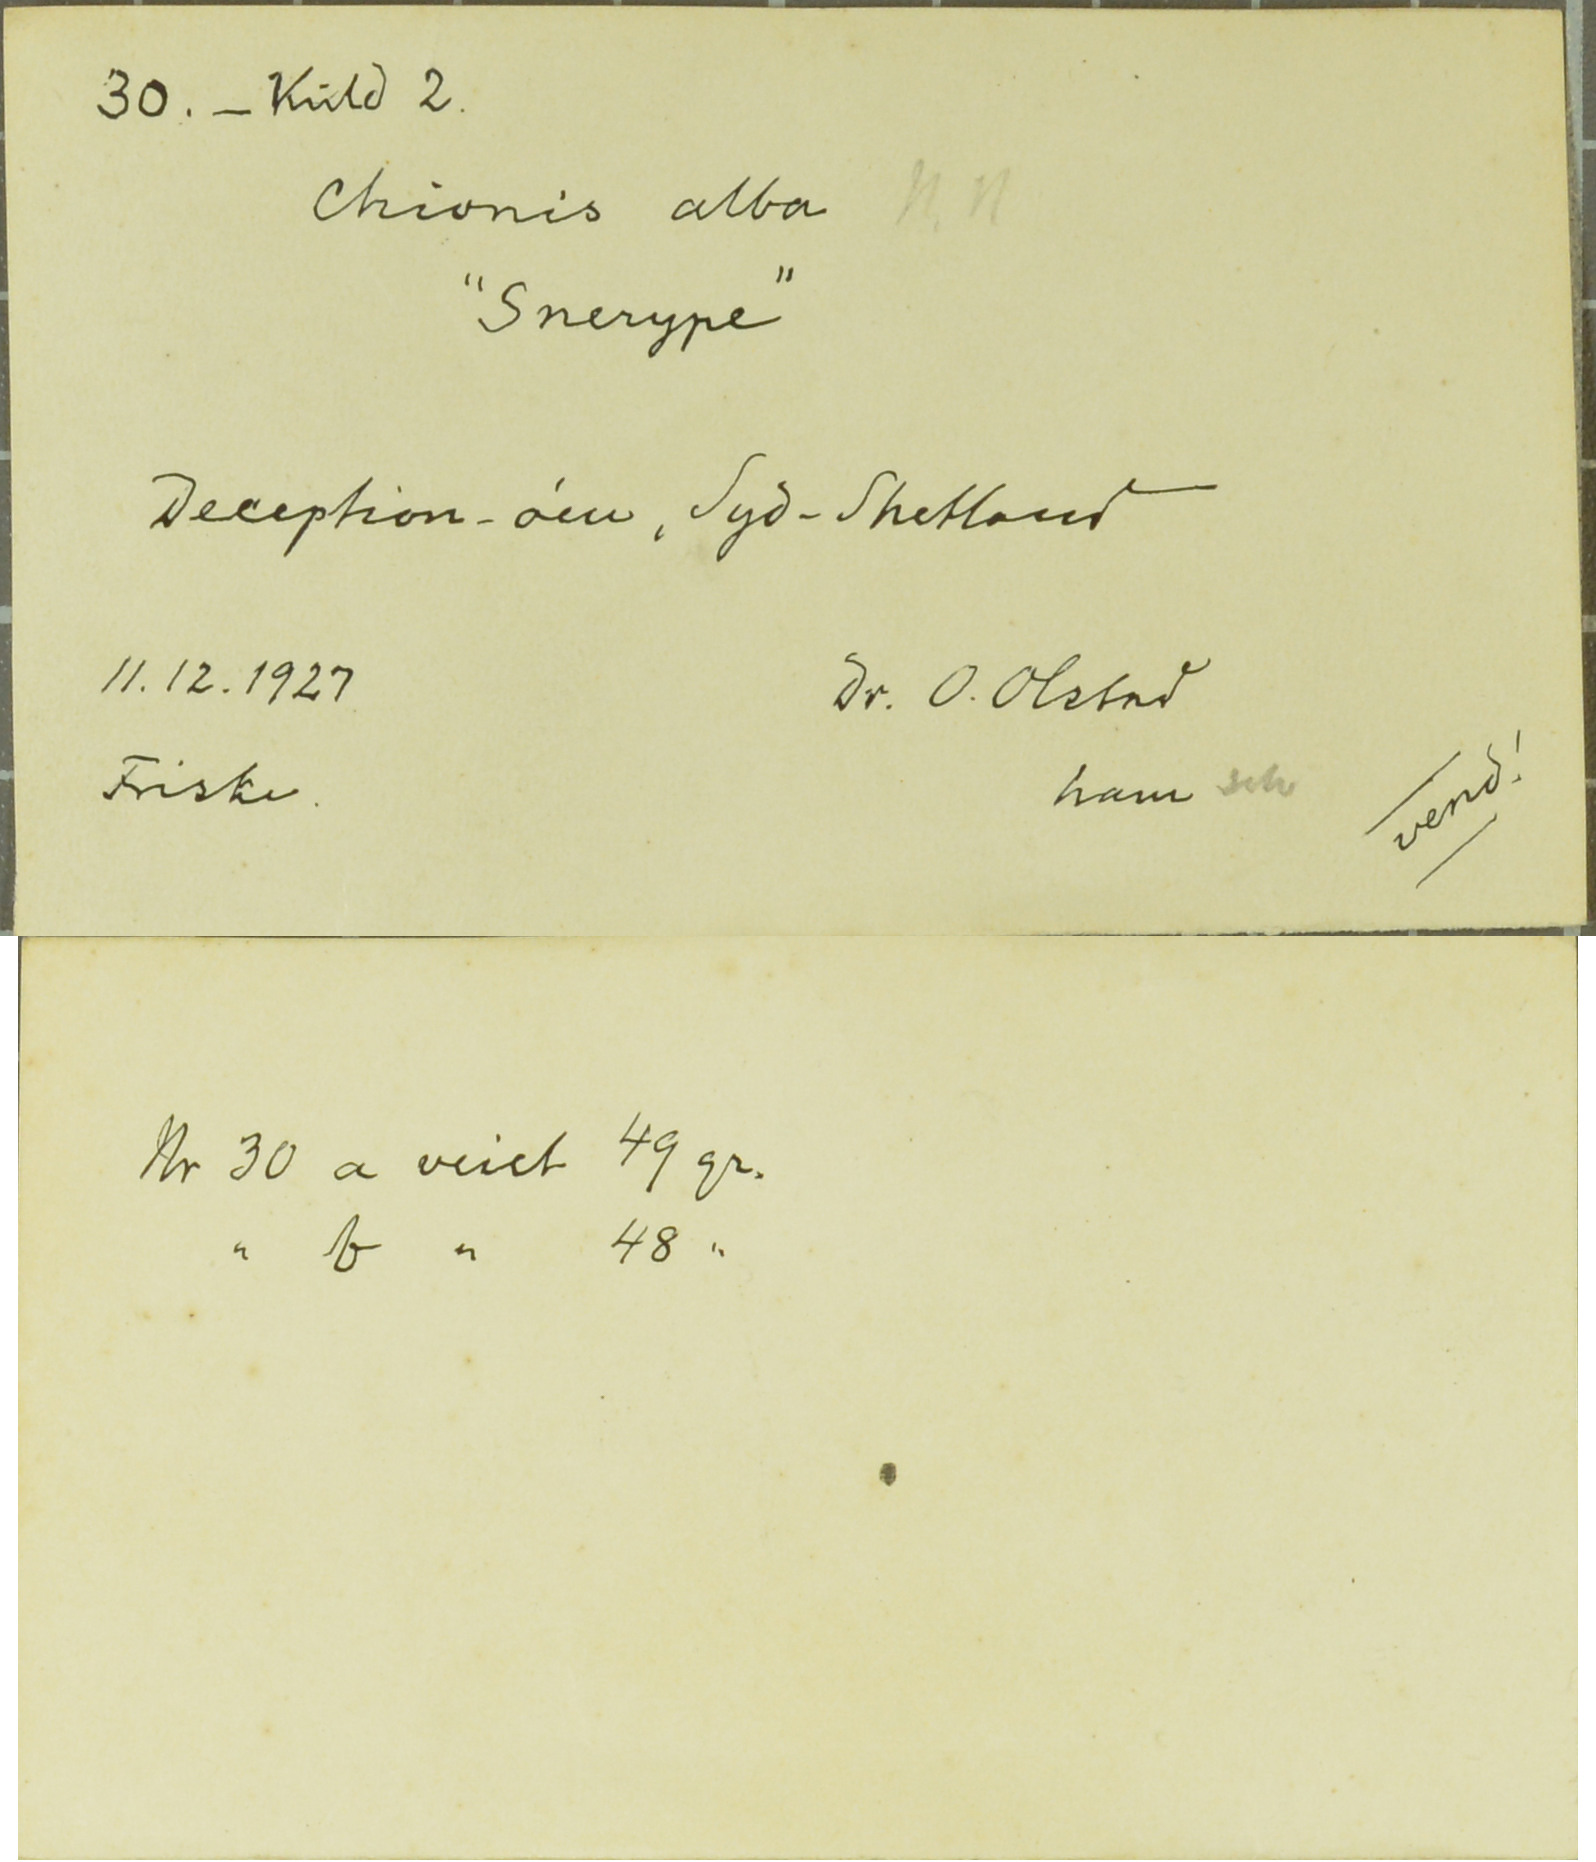 30. – Kuld 2.
Chionis alba N. N
"Snerype"
Deception-øen, Syd-Shetland
11.12.1927
Dr. O. Olstad
Friske.
ham
vend!
Nr 30 a veiet 49 gr.
" b " 48 "